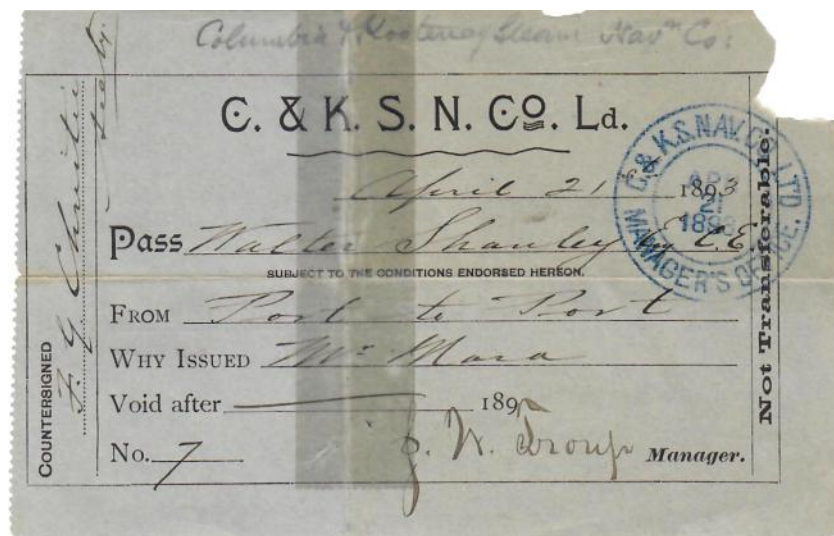 Columbia & Kootenay Steam Navn Co:
C. & K. S. N. Co. Ld.
April 21st 1893
Pass Walter Shanley Esq C.E.
SUBJECT TO THE CONDITIONS ENDORSED HEREON.
FROM Port to Port
WHY ISSUED Mr Mara
Void after 189
No. 7 J. W. Troup Manager.
COUNTERSIGNED
Not Transferable.
C. & K.S. NAV. CO. LTD.
21
MANAGER'S OFFICE.